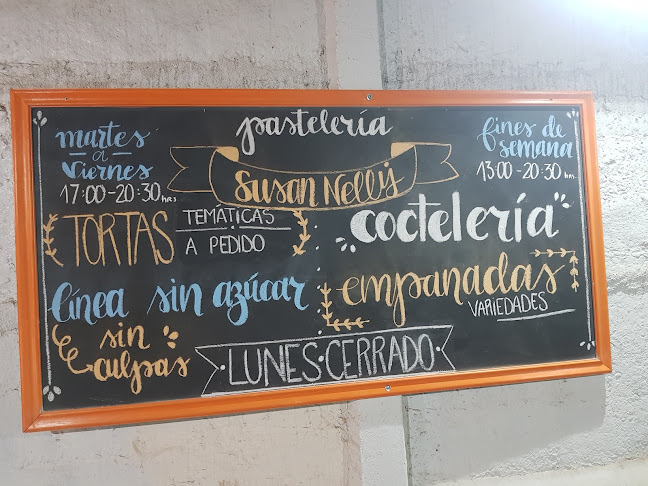 pastelería
Susan Nellys
martes
a
viernes
17:00-20:30 hrs
fines de
semana
13:00-20:30 hrs.
TORTAS
TEMÁTICAS
A PEDIDO
coctelería
línea sin azúcar
sin
culpas
empanadas
VARIEDADES
LUNES·CERRADO